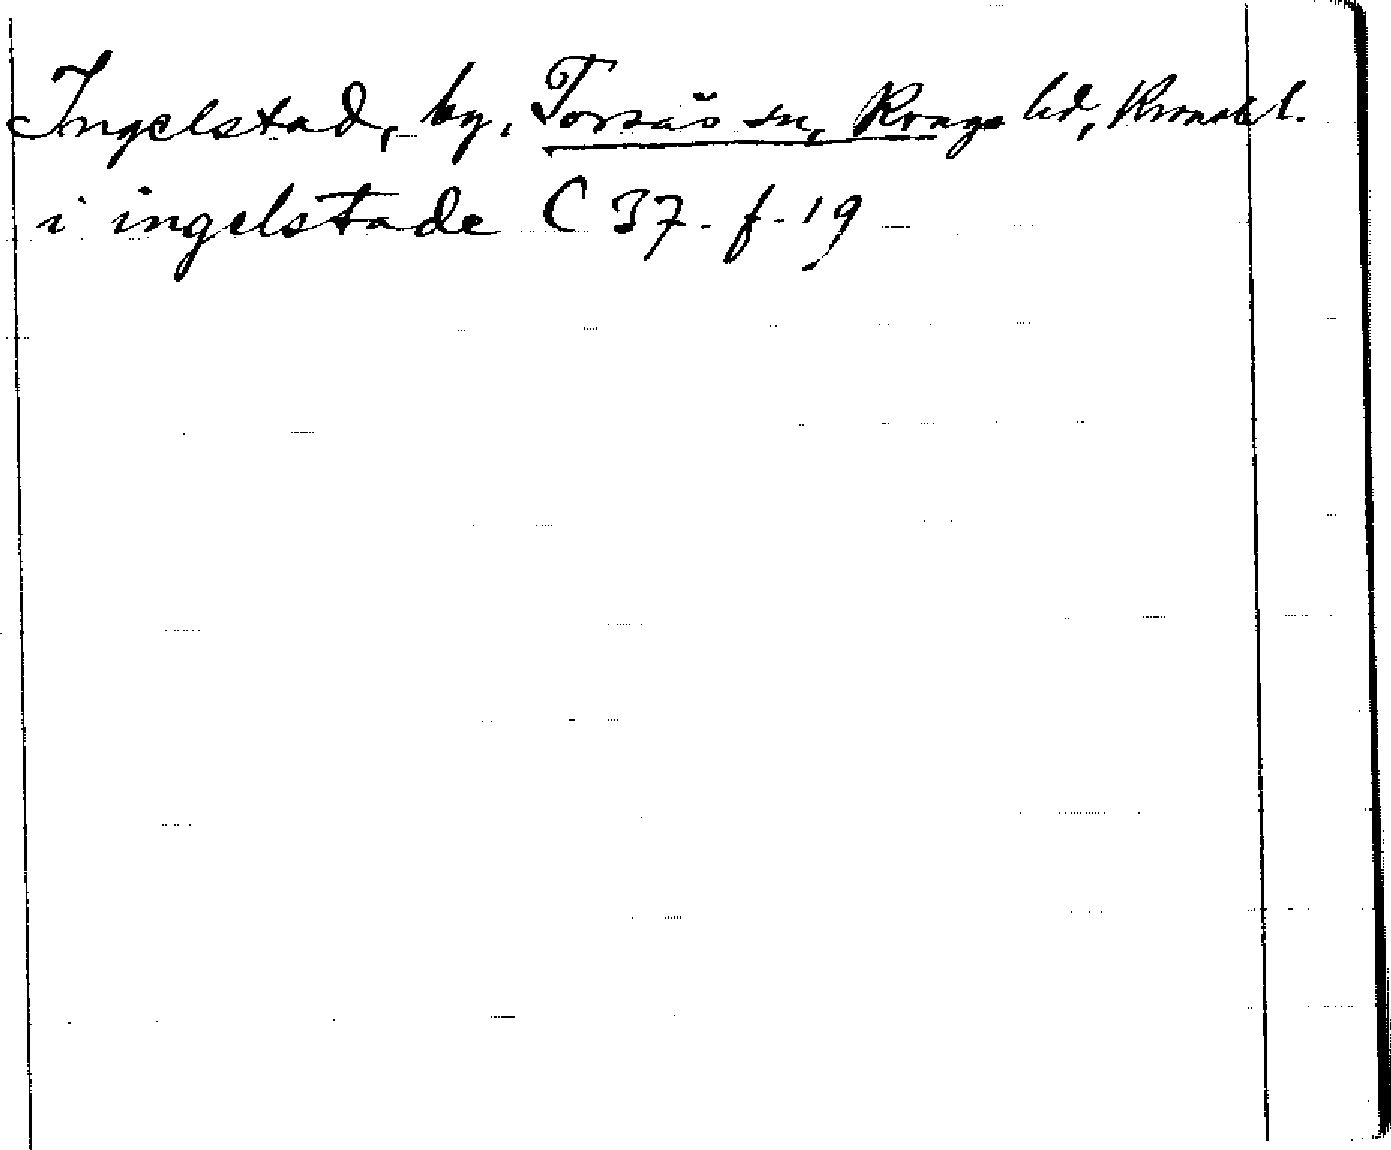 Ingelstad, by, Torsås sn, Konga hd, Kronobl.
i ingelstade C 37. f. 19